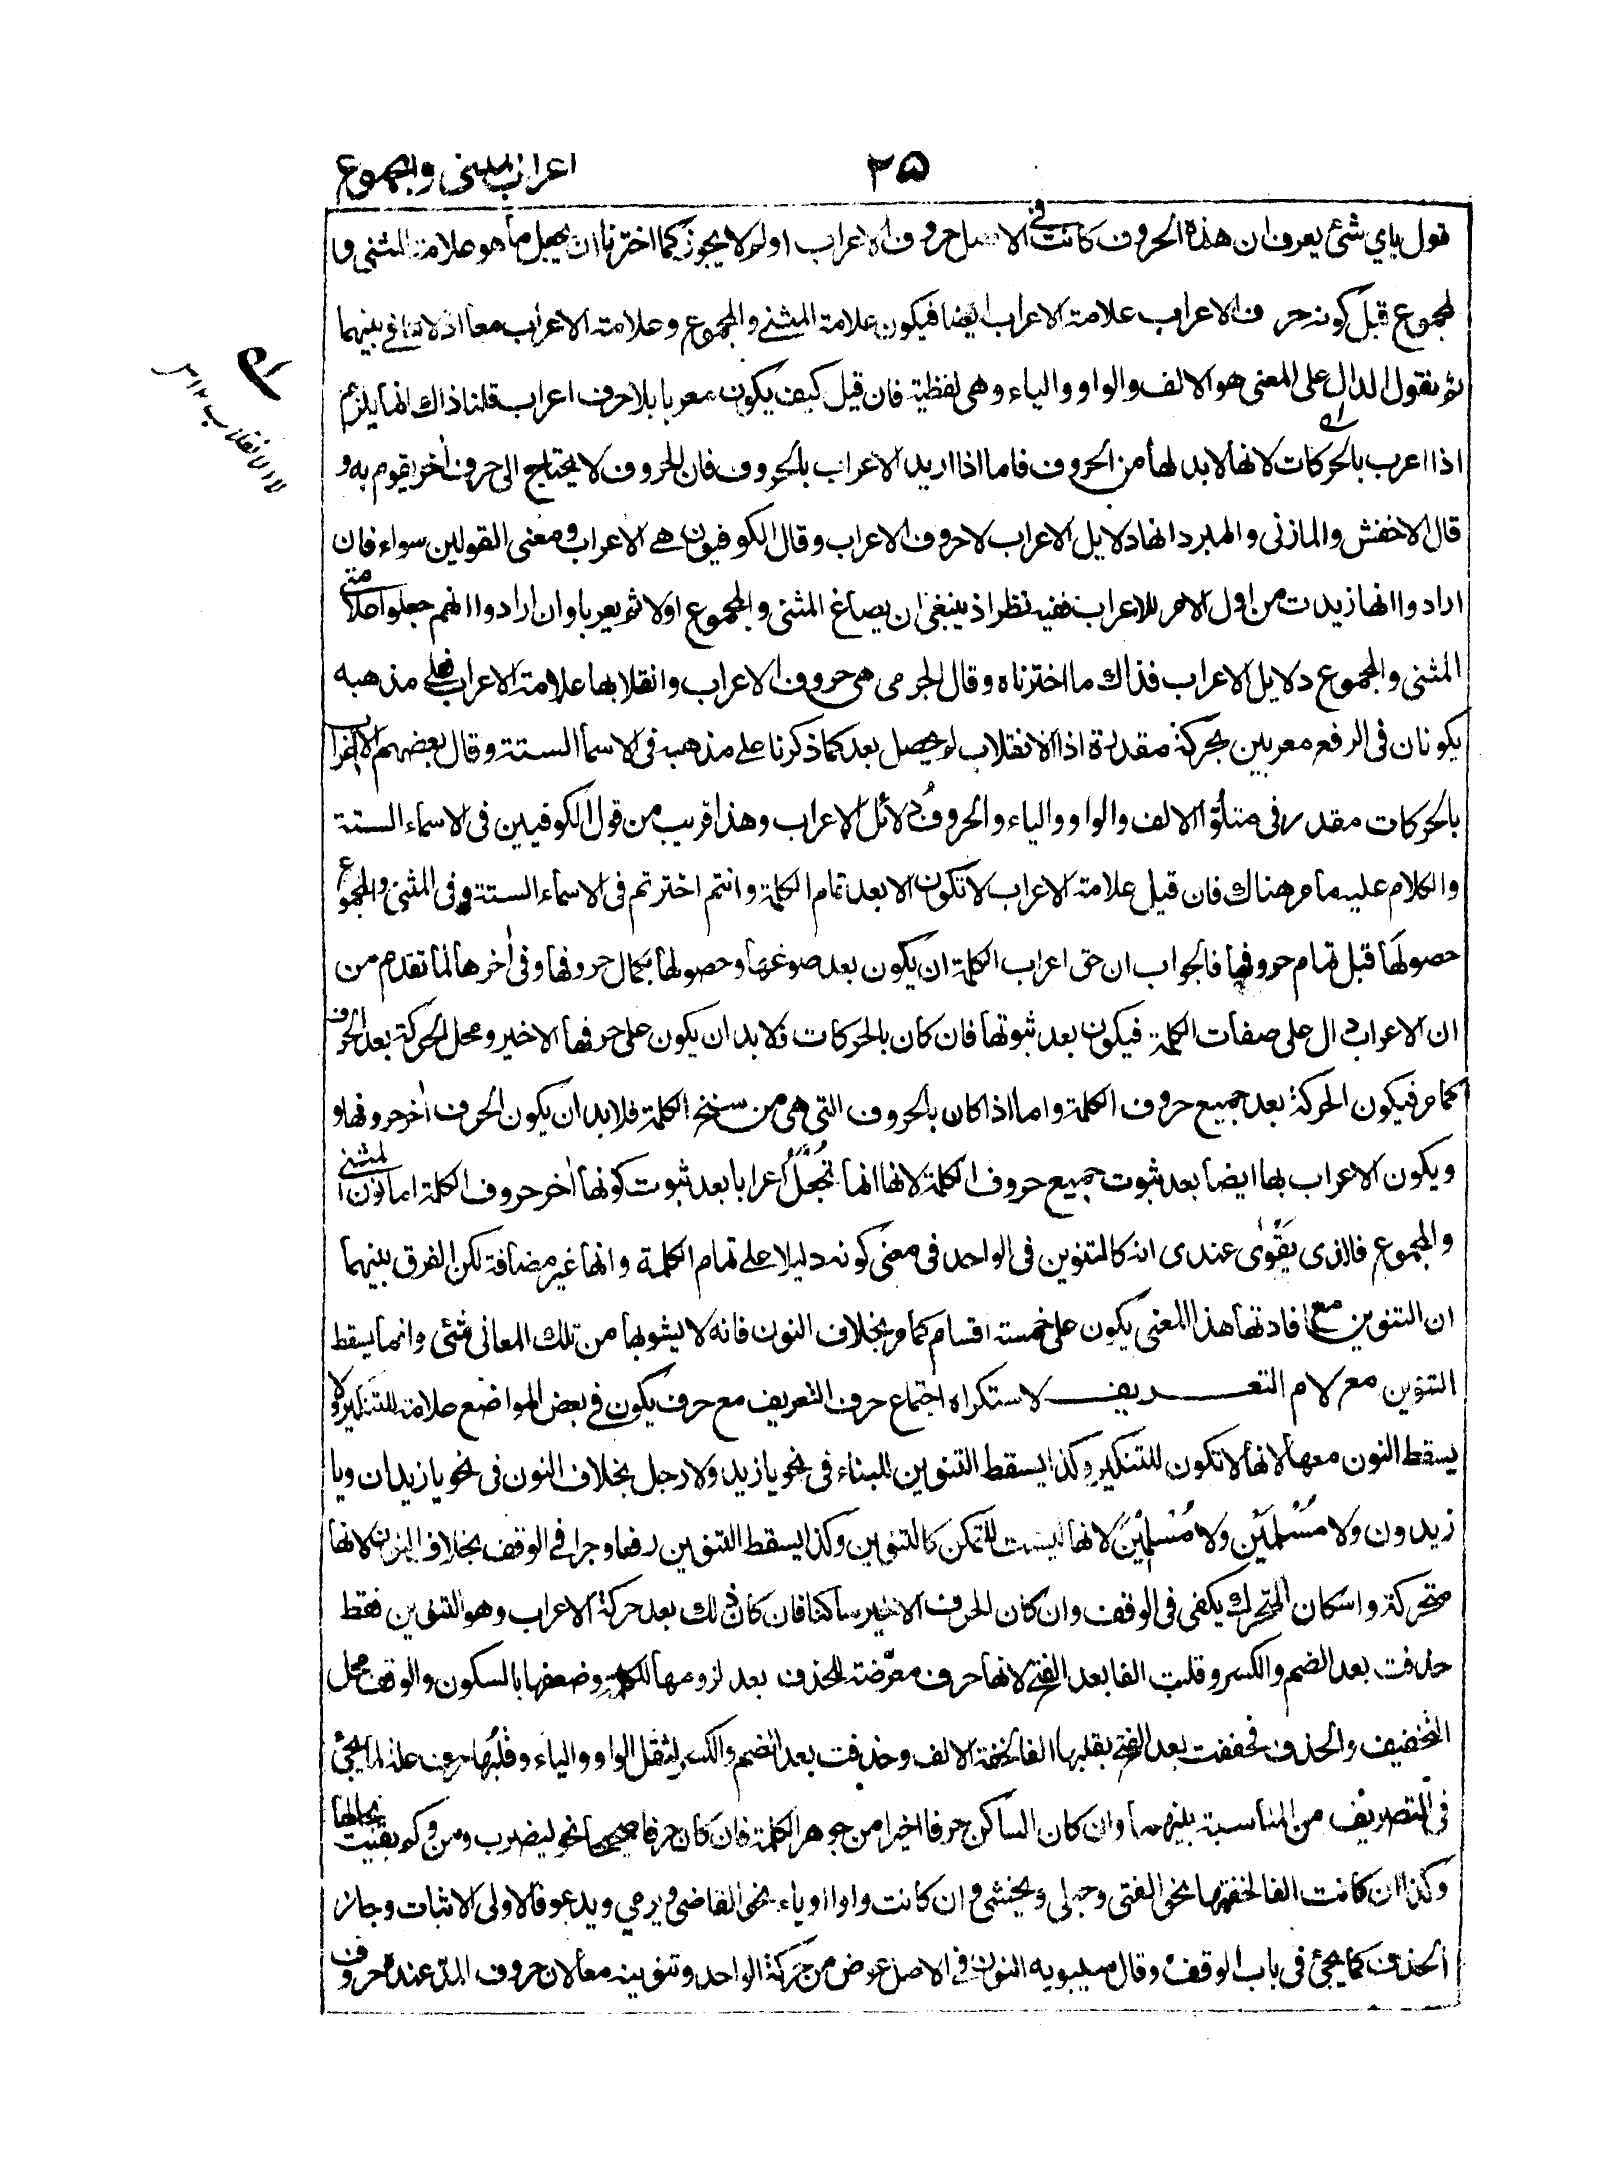 ٢٥
اعراب المثنى والمجموع
نقول باي شئ يعرف ان هذه الحروف كانت في الاصل حروف الاعراب اولا ولو لا يجوز كما اخترنا ان يجعل ما هو علامة المثنى و
المجموع قبل كونه حرف الاعراب علامة الاعراب ايضا فيكون علامة المثنى والمجموع وعلامة الاعراب معا اذ لا تنافي بينهما
ثم نقول الدال على المعنى هو الالف والواو والياء وهي لفظية فان قيل كيف يكون معربا بلا حرف اعراب قلنا ذاك انما يلزم
اذا اعرب بالحركات لانها لا بد لها من الحروف فاما اذا اريد الاعراب بالحروف فان الحروف لا يحتاج الى حروف أخر يقوم به و
قال الاخفش والمازنى والمبرد انها دلايل الاعراب لا حروف الاعراب وقال الكوفيون هي الاعراب ومعنى القولين سواء فان
ارادوا انها زيدت من اول الامر للاعراب ففيه نظر اذ ينبغي ان يصاغ المثنى والمجموع اولا ثم يعربا وان ارادوا انهم جعلوا علامتي
المثنى والمجموع دلايل الاعراب فذاك ما اخترناه وقال الجرمي هي حروف الاعراب وانقلابها علامة الاعراب فعلى مذهبه
يكونان في الرفع معربين بحركة مقدرة اذ الانقلاب لم يحصل بعد كما ذكرنا على مذهبه في الاسما الستة وقال بعضهم الاعراب
بالحركات مقدر في متلو الالف والواو والياء والحروف دلائل الاعراب وهذا قريب من قول الكوفيين في الاسماء الستة
والكلام عليه ما مر هناك فان قيل علامة الاعراب لا تكون الا بعد تمام الكلمة وانتم اخترتم في الاسماء الستة وفي المثنى والمجموع
حصولها قبل تمام حروفها فالجواب ان حق اعراب الكلمة ان يكون بعد صوغها وحصولها بكمال حروفها وفي أخرها لما تقدم من
ان الاعراب دال على صفات الكلمة فيكون بعد ثبوتها فان كان بالحركات فلا بد ان يكون على حرفها الاخير ومحل الحركة بعد الحرف
كما مر فيكون الحركة بعد جميع حروف الكلمة واما اذا كان بالحروف التي هي من سنخ الكلمة فلا بد ان يكون الحرف أخر حروفها و
ويكون الاعراب بها ايضا بعد ثبوت جميع حروف الكلمة لانها انما تُجعَلُ اعرابا بعد ثبوت كونها أخر حروف الكلمة اما نون المثنى
والمجموع فالذى يقوى عندى انه كالتنوين في الواحد في معنى كونه دليلا على تمام الكلمة وانها غير مضافة لكن الفرق بينهما
ان التنوين مع افادتها هذا المعنى يكون على خمسة اقسام كما مر بخلاف النون فانه لا يشوبها من تلك المعانى شئ وانما يسقط
التنوين مع لام التعريف لاستكراه اجتماع حرف التعريف مع حرف يكون في بعض المواضع علامة للتنكير ولا
يسقط النون معها لانها لا تكون للتنكير وكذا يسقط التنوين للبناء في نحو يا زيد ولا رجل بخلاف النون في نحو يا زيدان ويا
زيدون ولا مُسْلِمَيْن ولا مُسْلِمِيْنَ لانها ليست للتمكن كالتنوين وكذا يسقط التنوين رفعا وجرا في الوقف بخلاف النون لانها
متحركة واسكان المتحرك يكفي في الوقف وان كان الحرف الاخير ساكنا فان كان ذلك بعد حركة الاعراب وهو التنوين فقط
حذفت بعد الضم والكسر وقلبت الفا بعد الفتح لانها حرف معرّضة للحذف بعد لزومها للكلمة وضعفها بالسكون والوقف محل
التخفيف والحذف فخففت بعد الفتح بقلبها الفا لخفة الالف وحذفت بعد الضم والكسر لثقل الواو والياء وقلبُها حرف علة لما يجئ
في التصريف من المناسبة بينهما وان كان الساكن حرفا اخيرا من جوهر الكلمة فان كان حرفا صحيحا نحو ليضرب ومن وكم بقيت بحالها
وكذا ان كانت الفا لخفتها نحو الفتى وحبلى ويخشى وان كانت واوا او ياء نحو القاضي ويرمي ويدعو فالاولى الاثبات وجاز
الحذف كما يجئ في باب الوقف وقال سيبويه النون في الاصل عوض من حركة الواحد وتنوينه معا لان حروف المد عنده حروف